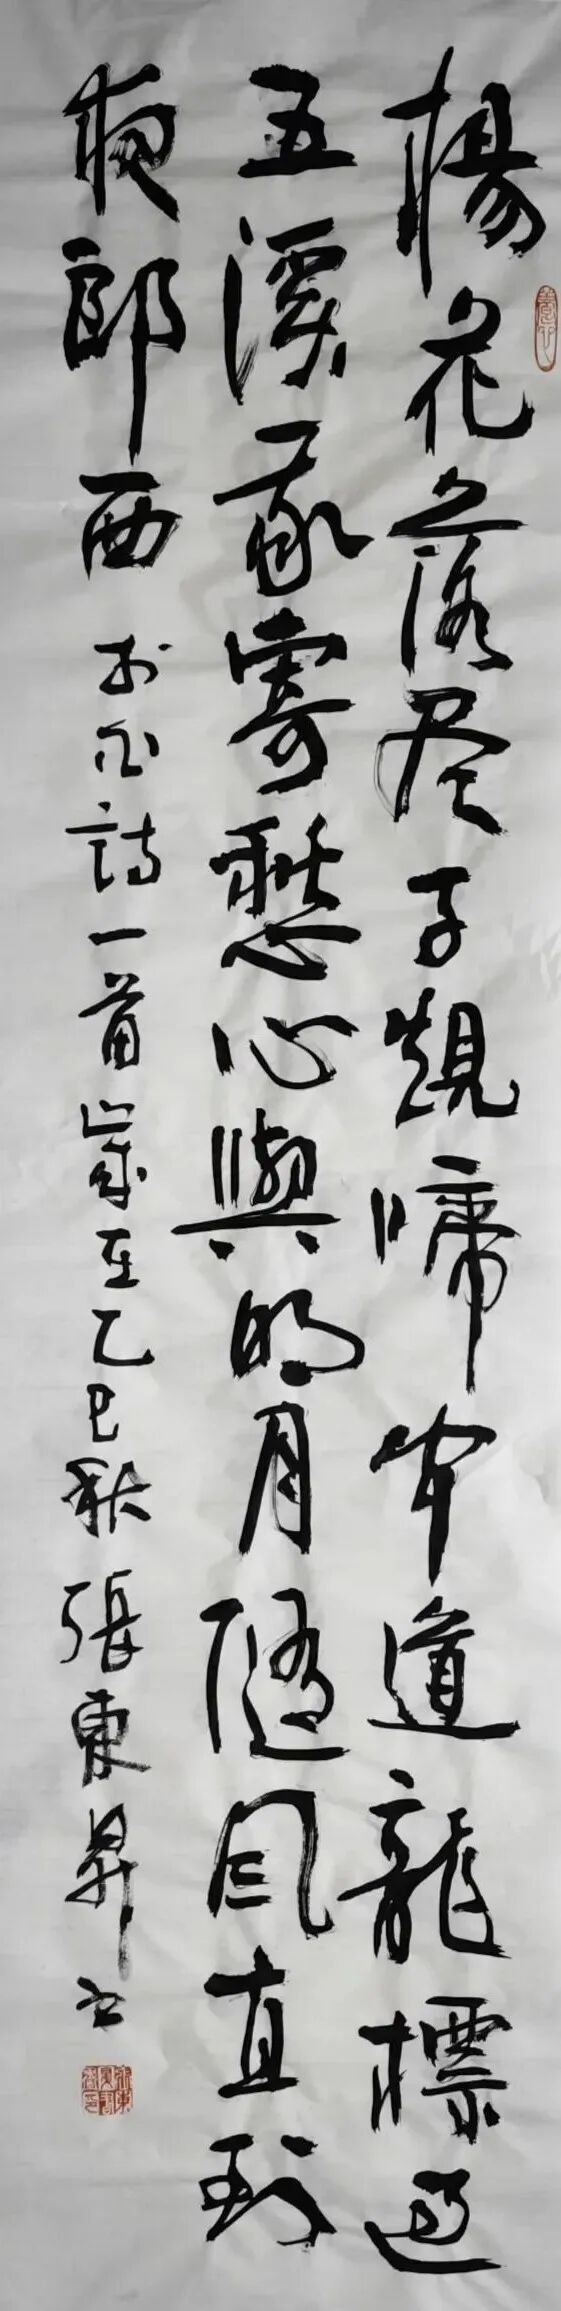 楊花落尽子規啼闻道龍標過
五溪我寄愁心與明月随风直到
夜郎西 李白詩一首歲在乙巳秋張東昇书